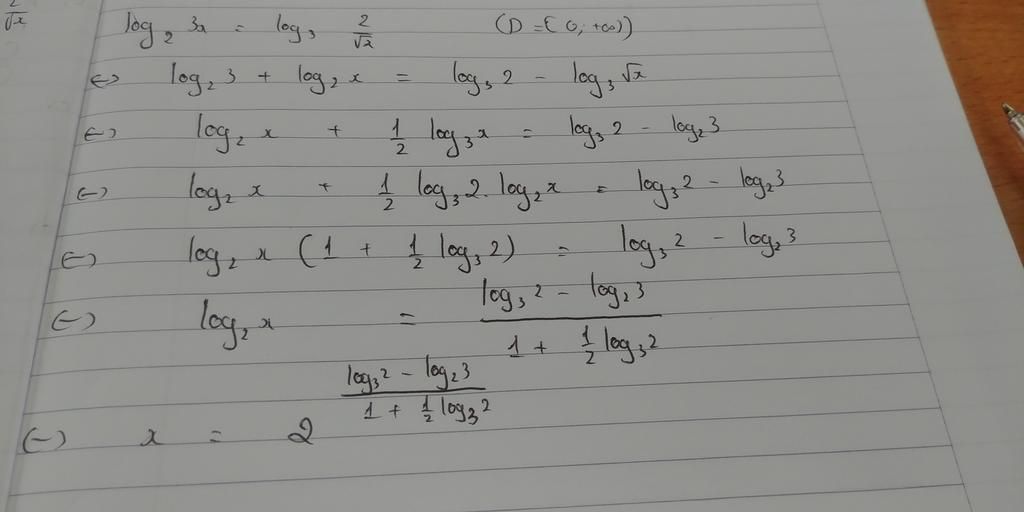 2/√x
log₂ 3x = log₃ 2/√x (D = (0; +∞))
⇔ log₂ 3 + log₂ x = log₃ 2 − log₃ √x
⇔ log₂ x + 1/2 log₃ x = log₃ 2 − log₂ 3
⇔ log₂ x + 1/2 log₃ 2 . log₂ x = log₃ 2 − log₂ 3
⇔ log₂ x (1 + 1/2 log₃ 2) = log₃ 2 − log₂ 3
⇔ log₂ x = (log₃ 2 − log₂ 3)/(1 + 1/2 log₃ 2)
⇔ x = 2^((log₃ 2 − log₂ 3)/(1 + 1/2 log₃ 2))